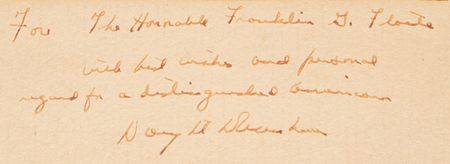 For The Honorable Franklin G. Floete
with best wishes and personal
regard for a distinguished American
Dwight D Eisenhower